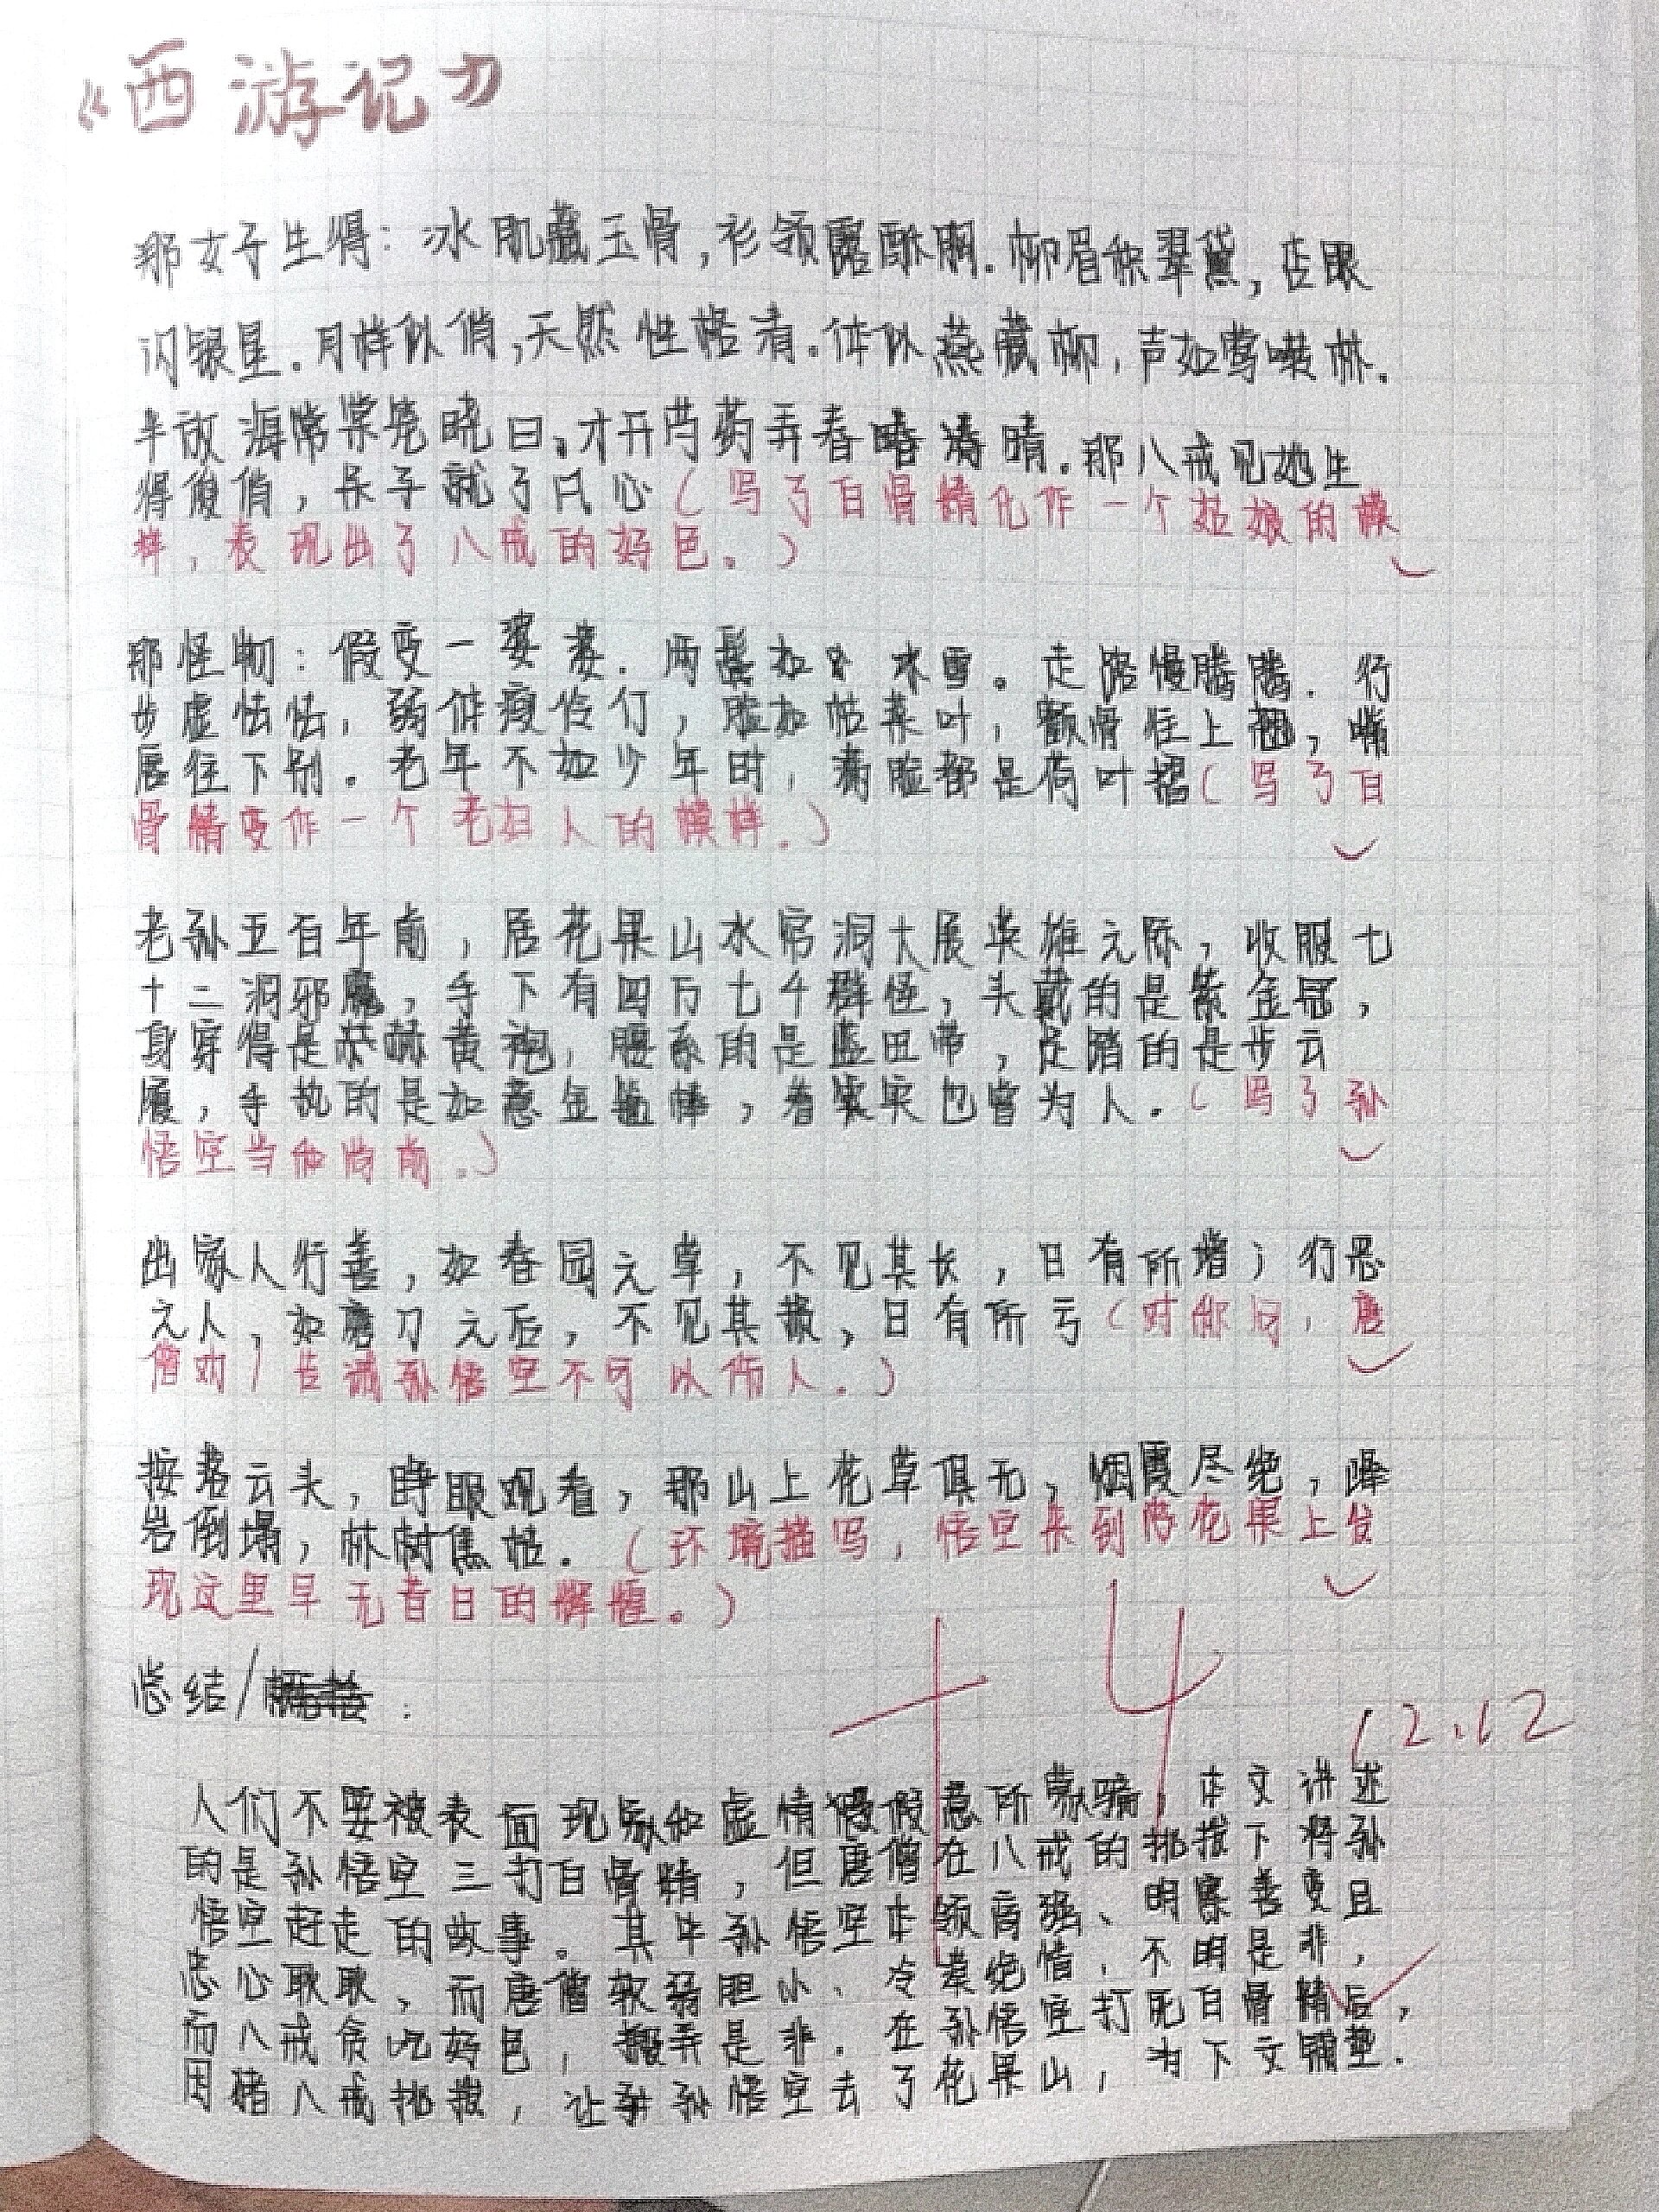 《西游记》
那女子生得：冰肌藏玉骨，衫领露酥胸。柳眉积翠黛，杏眼
闪银星。月样似俏，天然性格清。体似燕藏柳，声如莺啭林。
半放海棠笼晓日。才开芍药弄春晴。那八戒见她生
得俊俏，呆子就了凡心（写了白骨精化作一个姑娘的模
样，表现出了八戒的好色。）
那怪物：假变一婆婆．两鬓如冰雪。走路慢腾腾．行
步虚怯怯，弱体瘦伶仃，脸如枯菜叶，颧骨往上翘，嘴
唇往下别．老年不如少年时，满脸都是荷叶摺（写了白
骨精变作一个老妇人的模样．）
老孙五百年前，居花果山水帘洞大展英雄之际，收服七
十二洞邪魔，手下有四万七千群怪，头戴的是紫金冠，
身穿得是赭黄袍，腰系的是蓝田带，足踏的是步云
履，手执的是如意金箍棒，着实也曾为人．（写了孙
悟空当初的前．）
出家人行善，如春园之草，不见其长，日有所增；行恶
之人，如磨刀之石，不见其损，日有所亏（对你问，唐
僧劝，告诫孙悟空不可以伤人．）
按落云头，睁眼观看，那山上花草俱无，烟霞尽绝，峰
岩倒塌，林树焦枯．（环境描写，悟空来到花果上发
现这里早无昔日的辉煌。）
总结/ ：
+4
12.12
人们不要被表面现象和虚情假意所蒙骗，本文讲述
的是孙悟空三打白骨精，但唐僧在八戒的挑拨下将孙
悟空赶走的故事。其中孙悟空本领高强、明察善变且
忠心耿耿，而唐僧软弱胆小、冷漠绝情，不明是非，
而八戒贪吃好色，搬弄是非．在孙悟空打死白骨精后，
因猪八戒挑拨，让孙悟空去了花果山，为下文铺垫．